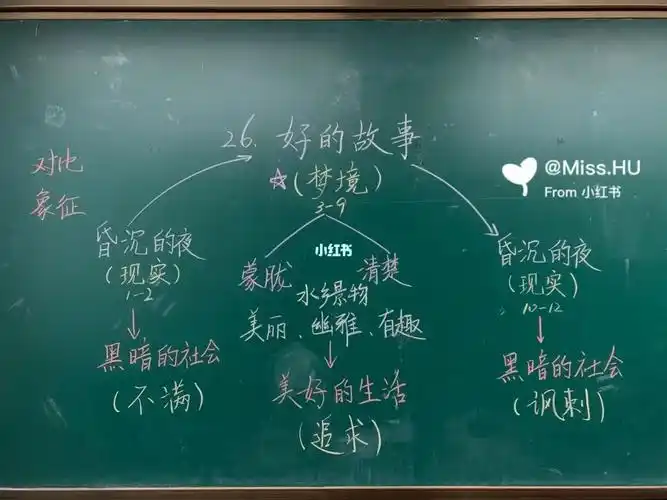 26. 好的故事
☆(梦境)
3-9
对比
象征
@Miss.HU
From 小红书
昏沉的夜
(现实)
1-2
黑暗的社会
(不满)
小红书
蒙胧 清楚
水乡景物
美丽、幽雅、有趣
美好的生活
(追求)
昏沉的夜
(现实)
10-12
黑暗的社会
(讽刺)